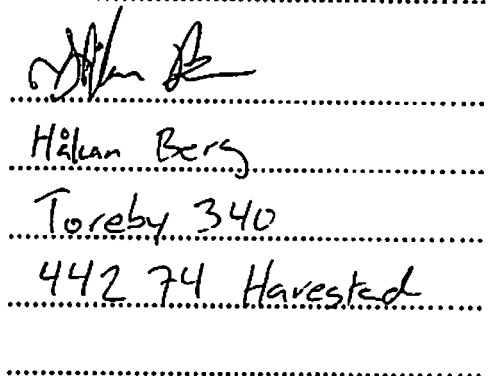 Håkan Berg
Toreby 340
442 74 Harestad